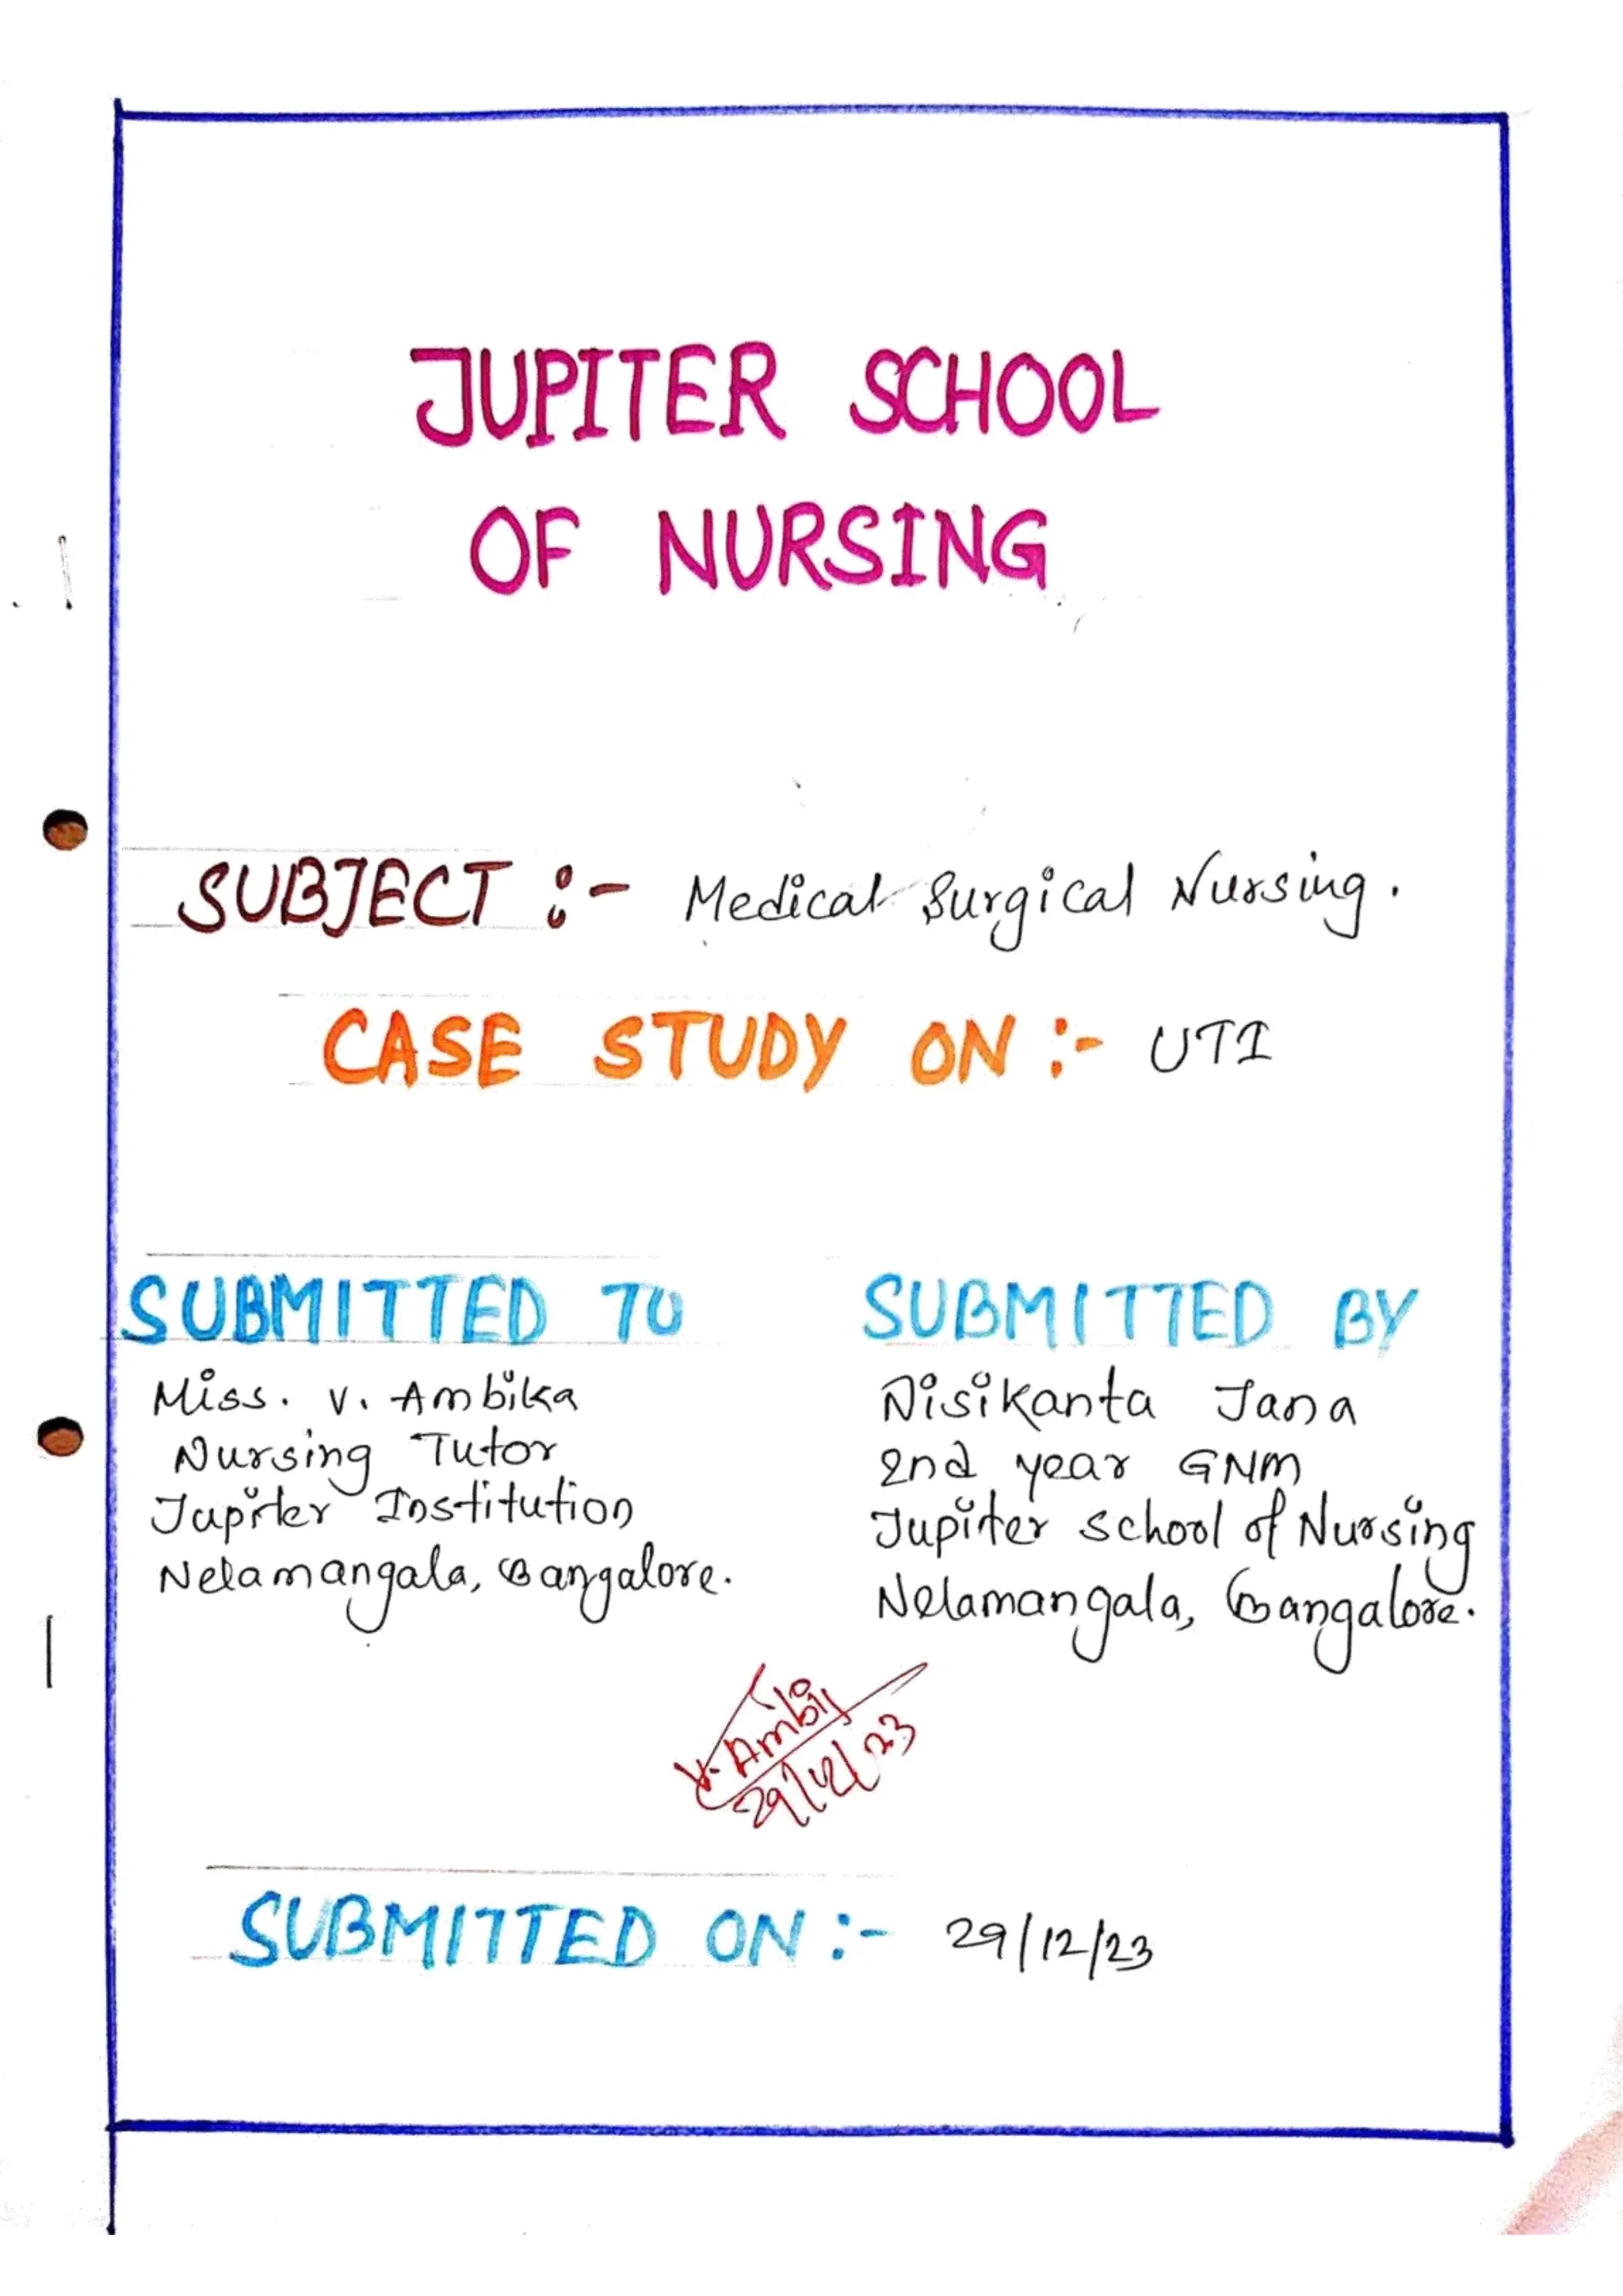 JUPITER SCHOOL
OF NURSING
SUBJECT :- Medical Surgical Nursing.
CASE STUDY ON :- UTI
SUBMITTED TO
Miss. V. Ambika
Nursing Tutor
Jupiter Institution
Nelamangala, Bangalore.
SUBMITTED BY
Nisikanta Jana
2nd year GNM
Jupiter School of Nursing
Nelamangala, Bangalore.
V. Ambi
29/12/23
SUBMITTED ON :- 29/12/23